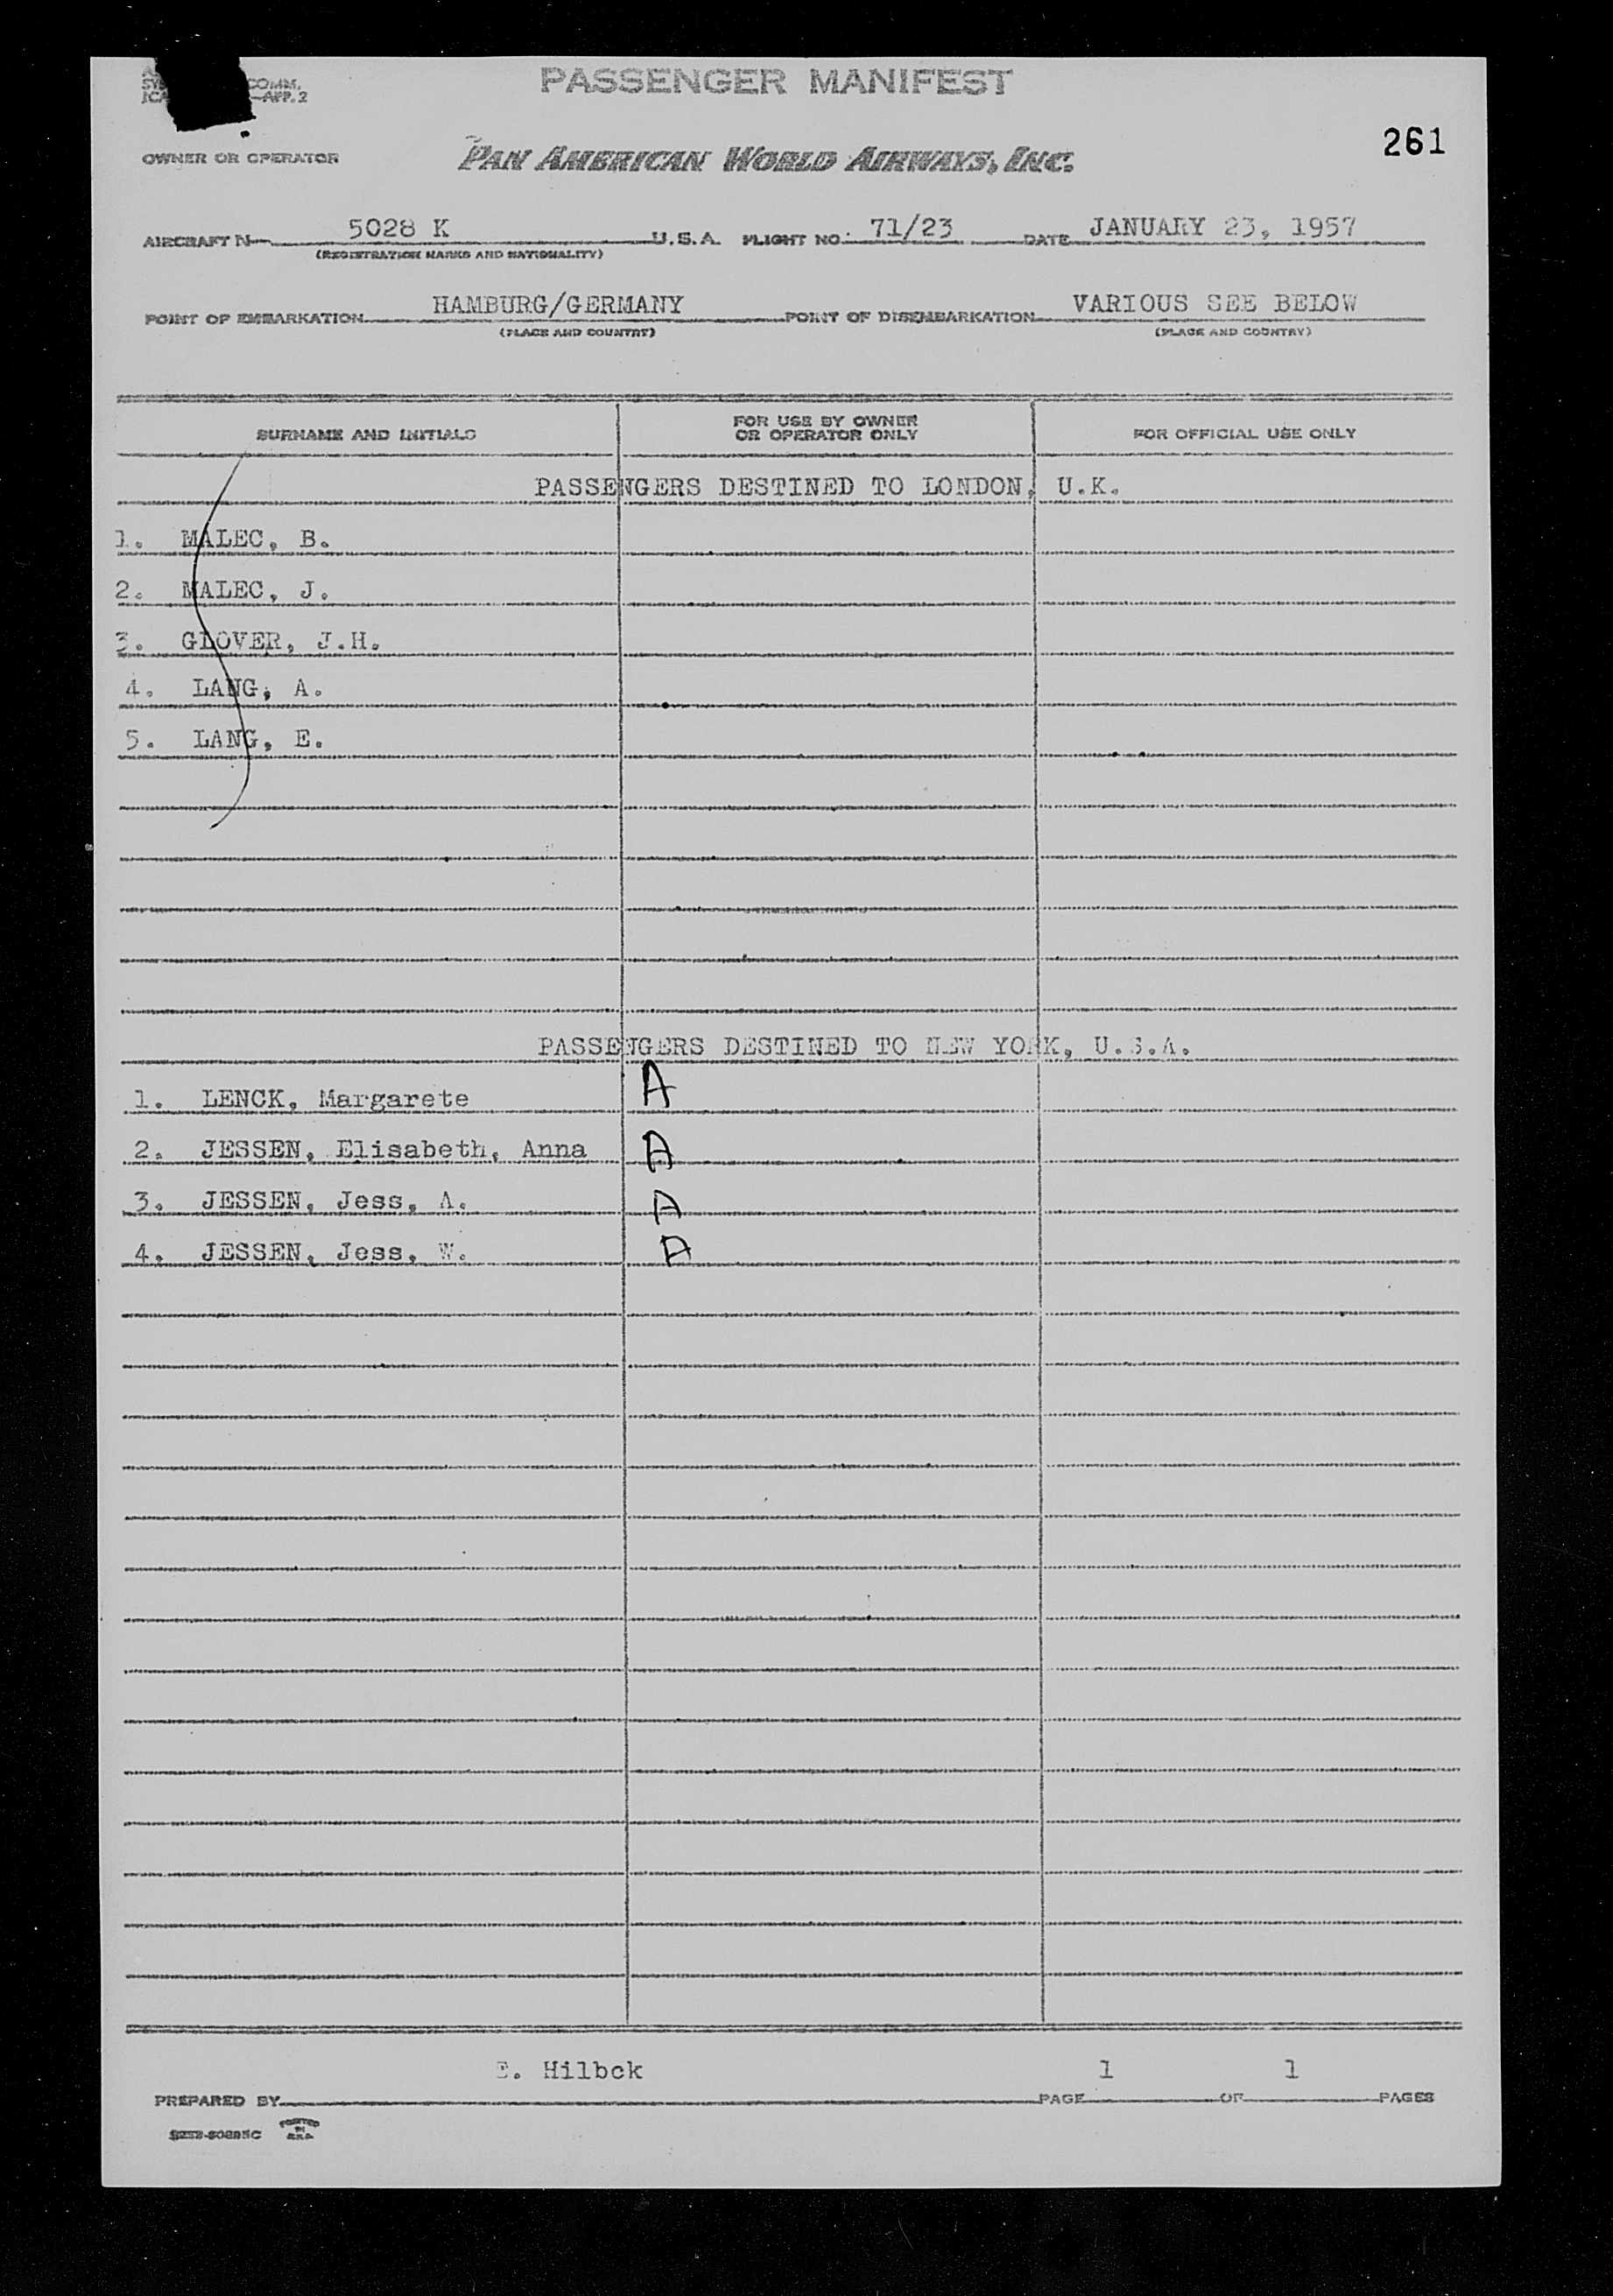 PASSENGER MANIFEST
COMM.
—APP. 2
261
OWNER OR OPERATOR PAN AMERICAN WORLD AIRWAYS, INC.
AIRCRAFT N— 5028 K U.S.A. FLIGHT NO. 71/23 DATE JANUARY 23, 1957
(REGISTRATION MARKS AND NATIONALITY)
POINT OF EMBARKATION HAMBURG/GERMANY POINT OF DISEMBARKATION VARIOUS SEE BELOW
(PLACE AND COUNTRY) (PLACE AND COUNTRY)
SURNAME AND INITIALS FOR USE BY OWNER OR OPERATOR ONLY FOR OFFICIAL USE ONLY
PASSENGERS DESTINED TO LONDON, U.K.
1. MALEC, B.
2. MALEC, J.
3. GLOVER, J.H.
4. LANG, A.
5. LANG, E.
PASSENGERS DESTINED TO NEW YORK, U.S.A.
1. LENCK, Margarete A
2. JESSEN, Elisabeth, Anna A
3. JESSEN, Jess, A. A
4. JESSEN, Jess, W. A
PREPARED BY E. Hilbck PAGE 1 OF 1 PAGES
PRINTED IN U.S.A.